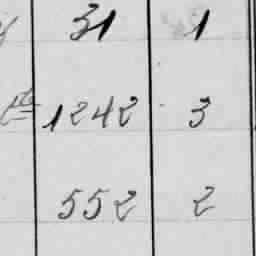 31 1
1242 3
552 2